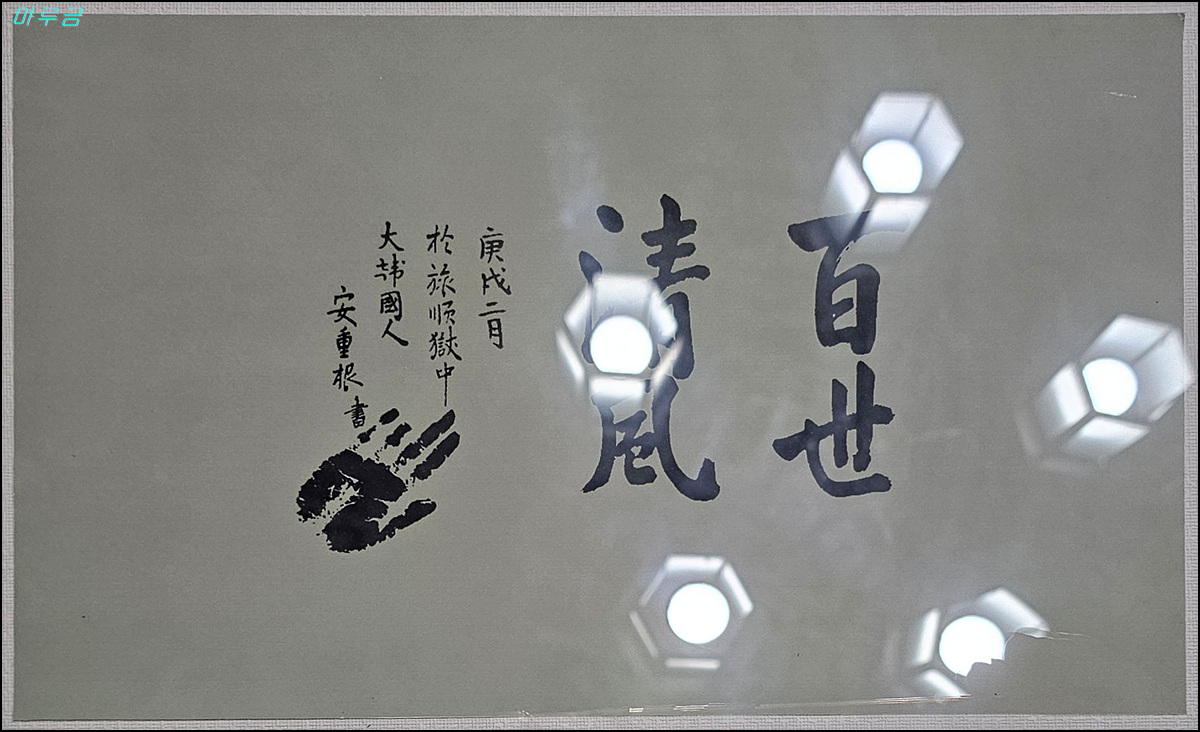 마루금
百世
清風
庚戌二月
於旅順獄中
大韓國人
安重根
書